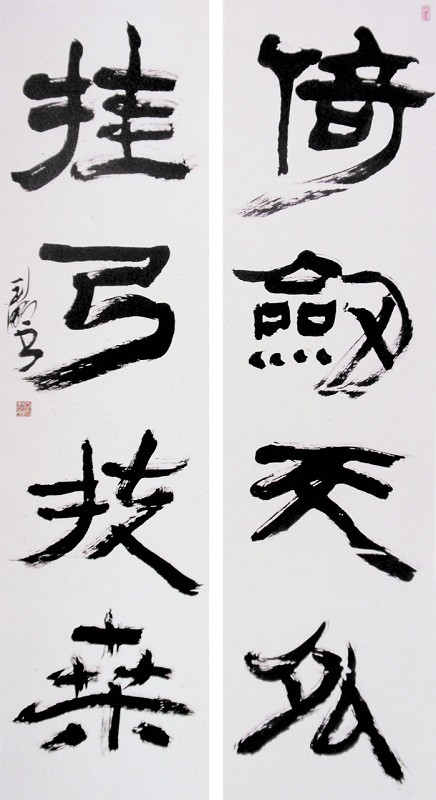 倚劍天外
挂弓扶桒